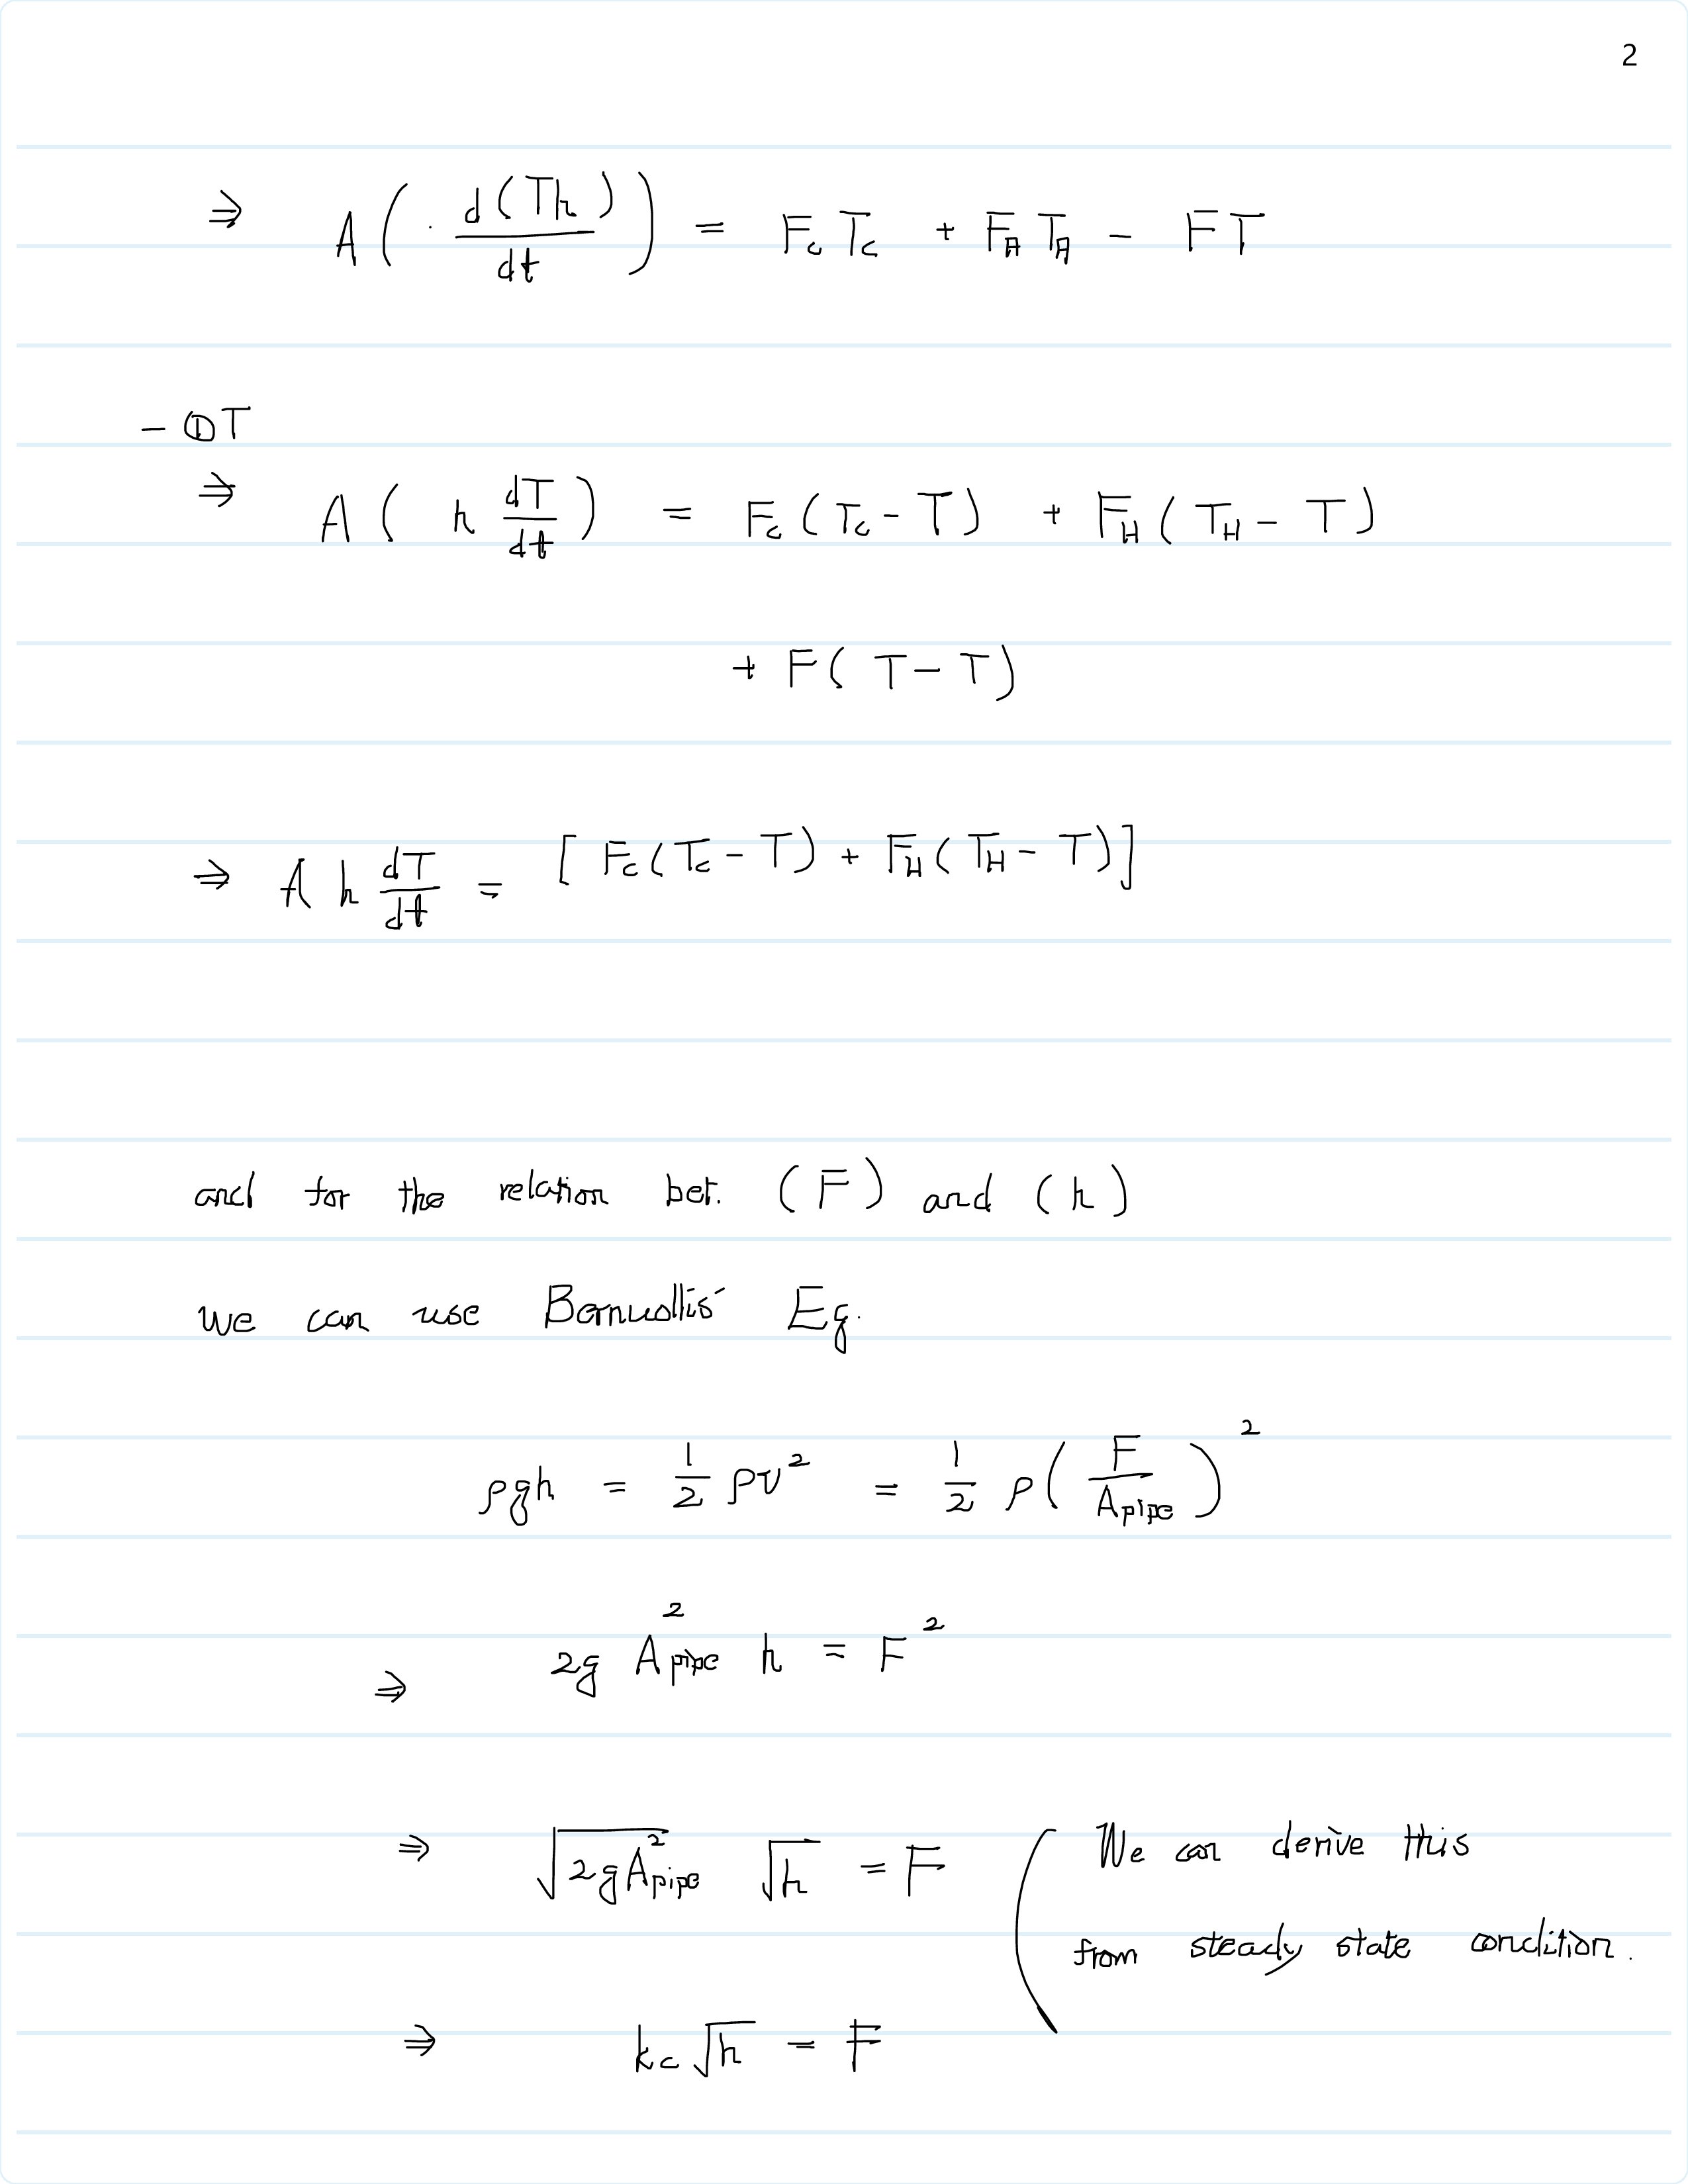 2
⇒ A( · d(Th)/dt ) = F_c T_c + F_H T_H − FT
− ①T
⇒ A( h dT/dt ) = F_c(T_c − T) + F_H(T_H − T)
+ F( T − T)
⇒ A h dT/dt = [ F_c(T_c − T) + F_H(T_H − T) ]
and for the relation bet. (F) and (h)
we can use Bernullis' Eq.
ρgh = 1/2 ρv² = 1/2 ρ( F/A_pipe )²
⇒ 2g A_pipe² h = F²
⇒ √(2gA_pipe²) √h = F ( We can derive this
from steady state condition.
⇒ k_c √h = F